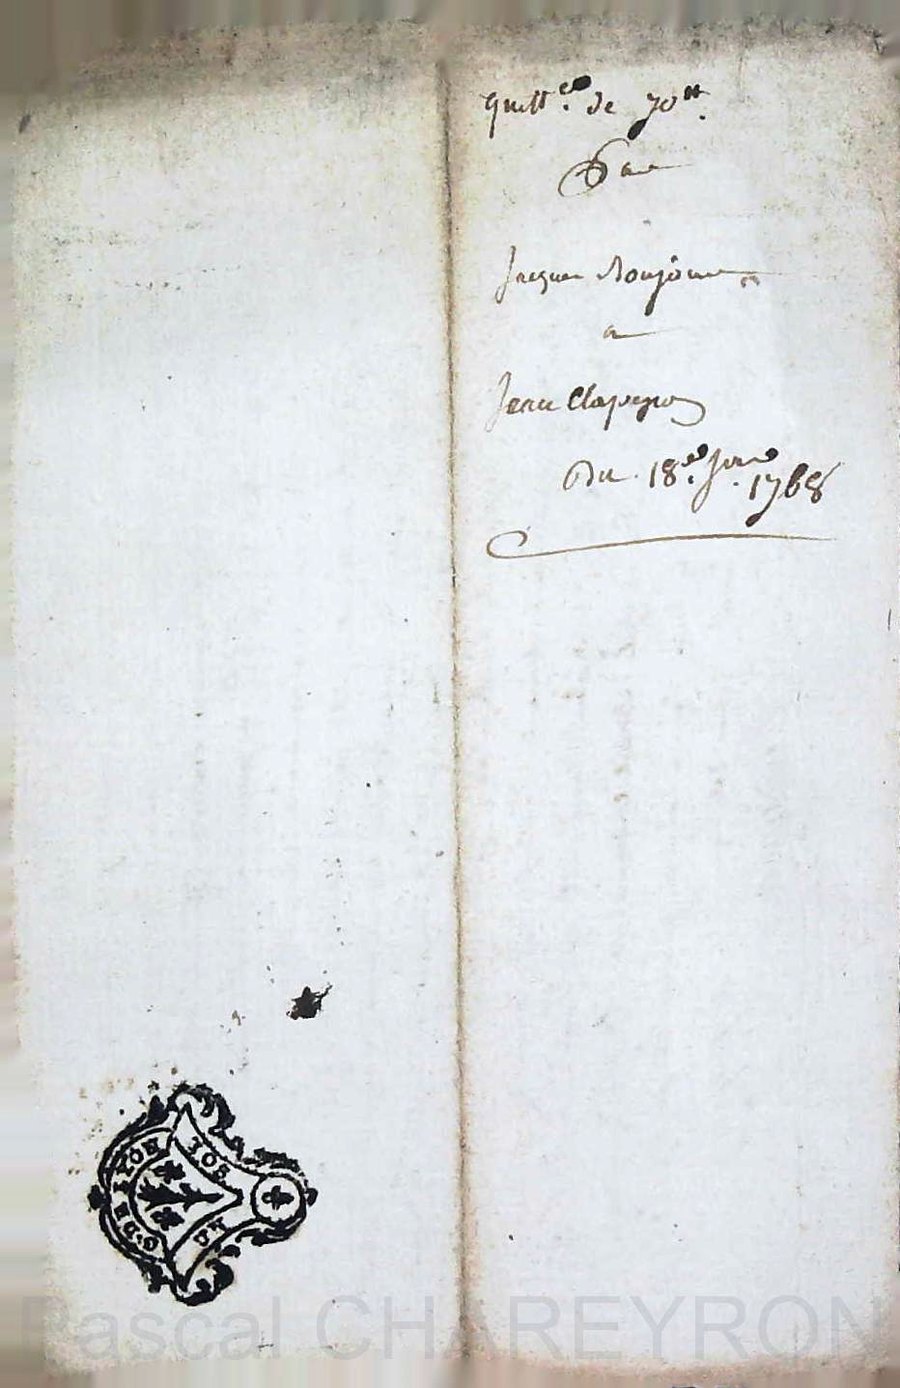 quitt.ce de 70tt.
Par
Jacques Monjour
a
Jean Clapeyron
Du 18.e Jer. 1768
G. DE LYON
UN SOL
Pascal CHAREYRON